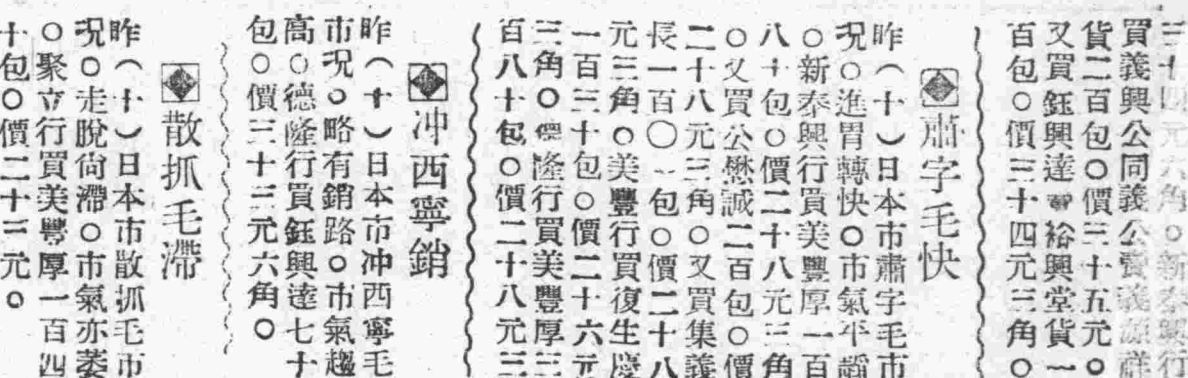 三十四元六角〇新泰興行
買義興公同義公賣義源祥
貨二百包〇價三十五元〇
又買鈺興達裕興堂貨一
百包〇價三十四元三角〇
肅字毛快
昨(十)日本市肅字毛市
況〇進胃轉快〇市氣平趨
〇新泰興行買美豐厚一百
八十包〇價二十八元三角
〇又買公懋誠二百包〇價
二十八元三角〇又買集義
長一百〇一包〇價二十八
元三角〇美豐行買復生慶
一百三十包〇價二十六元
三角〇德隆行買美豐厚三
百八十包〇價二十八元三
冲西寧銷
昨(十)日本市冲西寧毛
市況〇略有銷路〇市氣趨
高〇德隆行買鈺興達七十
包〇價三十三元六角〇
散抓毛滯
昨(十)日本市散抓毛市
況〇走脫尙滯〇市氣亦萎
〇聚立行買美豐厚一百四
十包〇價二十三元〇